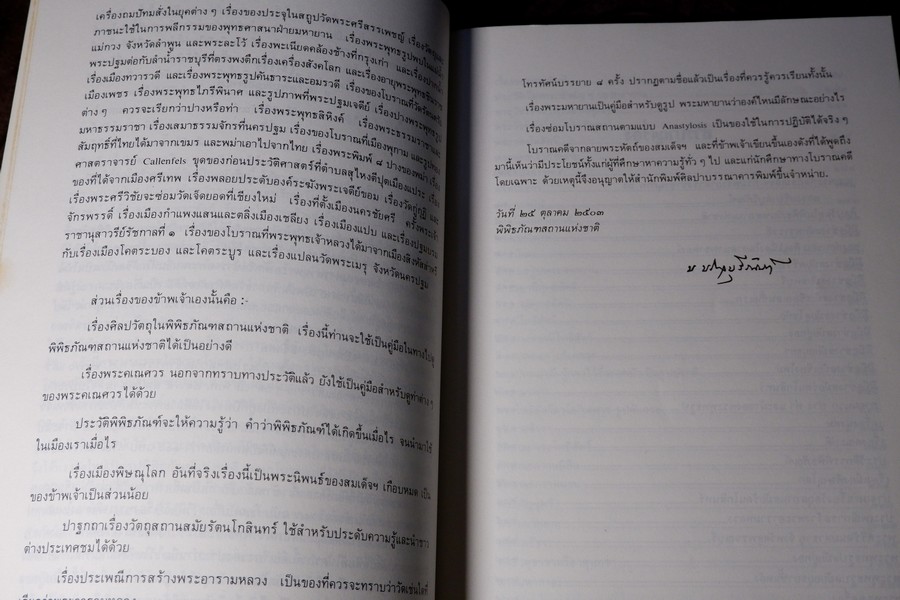 เครื่องถมปัทมสั่งในยุคต่าง ๆ เรื่องของประจุในสถูปวัดพระศรีสรรเพชญ์
ภาชนะใช้ในการพลีกรรมของพุทธศาสนาฝ่ายมหายาน เรื่องพระพุทธรูปพบในแม่น้ำ
แม่กวง จังหวัดลำพูน และพระละโว้ เรื่องพะเนียดคล้องช้างที่กรุงเก่า
พระปฐมต่อกับลำน้ำราชบุรีที่ตรงพงตึกเรื่องเครื่องสังคโลก
เรื่องเมืองทวารวดี และเรื่องพระพุทธรูปคันธาระและอมรวดี เรื่องของโบราณที่วัด
เมืองเพชร เรื่องพระพุทธไภรีพินาศ และรูปภาพที่พระปฐมเจดีย์
ต่าง ๆ ควรจะเรียกว่าปางหรือท่า เรื่องพระพุทธสิหิงค์
มหาธรรมราชา เรื่องเสมาธรรมจักรที่นครปฐม เรื่องของโบราณที่เมืองพุกาม
สัมฤทธิ์ที่ไทยได้มาจากเขมร และพม่าเอาไปจากไทย เรื่องพระพิมพ์ ๘ ปางของพม่า
ศาสตราจารย์ Callenfels ขุดของก่อนประวัติศาสตร์ที่ตำบล
ของที่ได้จากเมืองศรีเทพ เรื่องพลอยประดับองค์ระฆังพระเจดีย์ขอม
เรื่องพระศรีวิชัยจะซ่อมวัดเจ็ดยอดที่เชียงใหม่ เรื่องที่ตั้งเมืองนครชัยศรี
จักรพรรดิ์ เรื่องเมืองกำแพงแสนและตลิ่งเมืองเชลียง เรื่องเมืองแปบ
ราชานุสาวรีย์รัชกาลที่ ๑ เรื่องของโบราณที่พระพุทธเจ้าหลวงได้มาจากเมือง
กับเรื่องเมืองโคตระบอง และโคตระบูร และเรื่องแปลนวัดพระเมรุ จังหวัดนครปฐม
ส่วนเรื่องของข้าพเจ้าเองนั้นคือ :-
เรื่องศิลปวัตถุในพิพิธภัณฑสถานแห่งชาติ เรื่องนี้ท่านจะใช้เป็นคู่มือในทาง
พิพิธภัณฑสถานแห่งชาติได้เป็นอย่างดี
เรื่องพระคเณศวร นอกจากทราบทางประวัติแล้ว ยังใช้เป็นคู่มือสำหรับดูท่าต่าง ๆ
ของพระคเณศวรได้ด้วย
ประวัติพิพิธภัณฑ์จะให้ความรู้ว่า คำว่าพิพิธภัณฑ์ได้เกิดขึ้นเมื่อไร จนนำมาใช้
ในเมืองเราเมื่อไร
เรื่องเมืองพิษณุโลก อันที่จริงเรื่องนี้เป็นพระนิพนธ์ของสมเด็จฯ เกือบหมด เป็น
ของข้าพเจ้าเป็นส่วนน้อย
ปาฐกถาเรื่องวัตถุสถานสมัยรัตนโกสินทร์ ใช้สำหรับประดับความรู้และนำชาว
ต่างประเทศชมได้ด้วย
เรื่องประเพณีการสร้างพระอารามหลวง เป็นของที่ควรจะทราบว่าวัดเช่นใดที่
โทรทัศน์บรรยาย ๘ ครั้ง ปรากฏตามชื่อแล้วเป็นเรื่องที่ควรรู้ควรเรียนทั้งนั้น
เรื่องพระมหายานเป็นคู่มือสำหรับดูรูป พระมหายานว่าองค์ไหนมีลักษณะอย่างไร
เรื่องซ่อมโบราณสถานตามแบบ Anastylosis เป็นของใช้ในการปฏิบัติได้จริง ๆ
โบราณคดีจากลายพระหัตถ์ของสมเด็จฯ และที่ข้าพเจ้าเขียนขึ้นเองดังที่ได้พูดถึง
มานี้เห็นว่ามีประโยชน์ทั้งแก่ผู้ที่ศึกษาหาความรู้ทั่ว ๆ ไป และแก่นักศึกษาทางโบราณคดี
โดยเฉพาะ ด้วยเหตุนี้จึงอนุญาตให้สำนักพิมพ์ศิลปาบรรณาคารพิมพ์ขึ้นจำหน่าย.
วันที่ ๒๕ ตุลาคม ๒๕๐๓
พิพิธภัณฑสถานแห่งชาติ